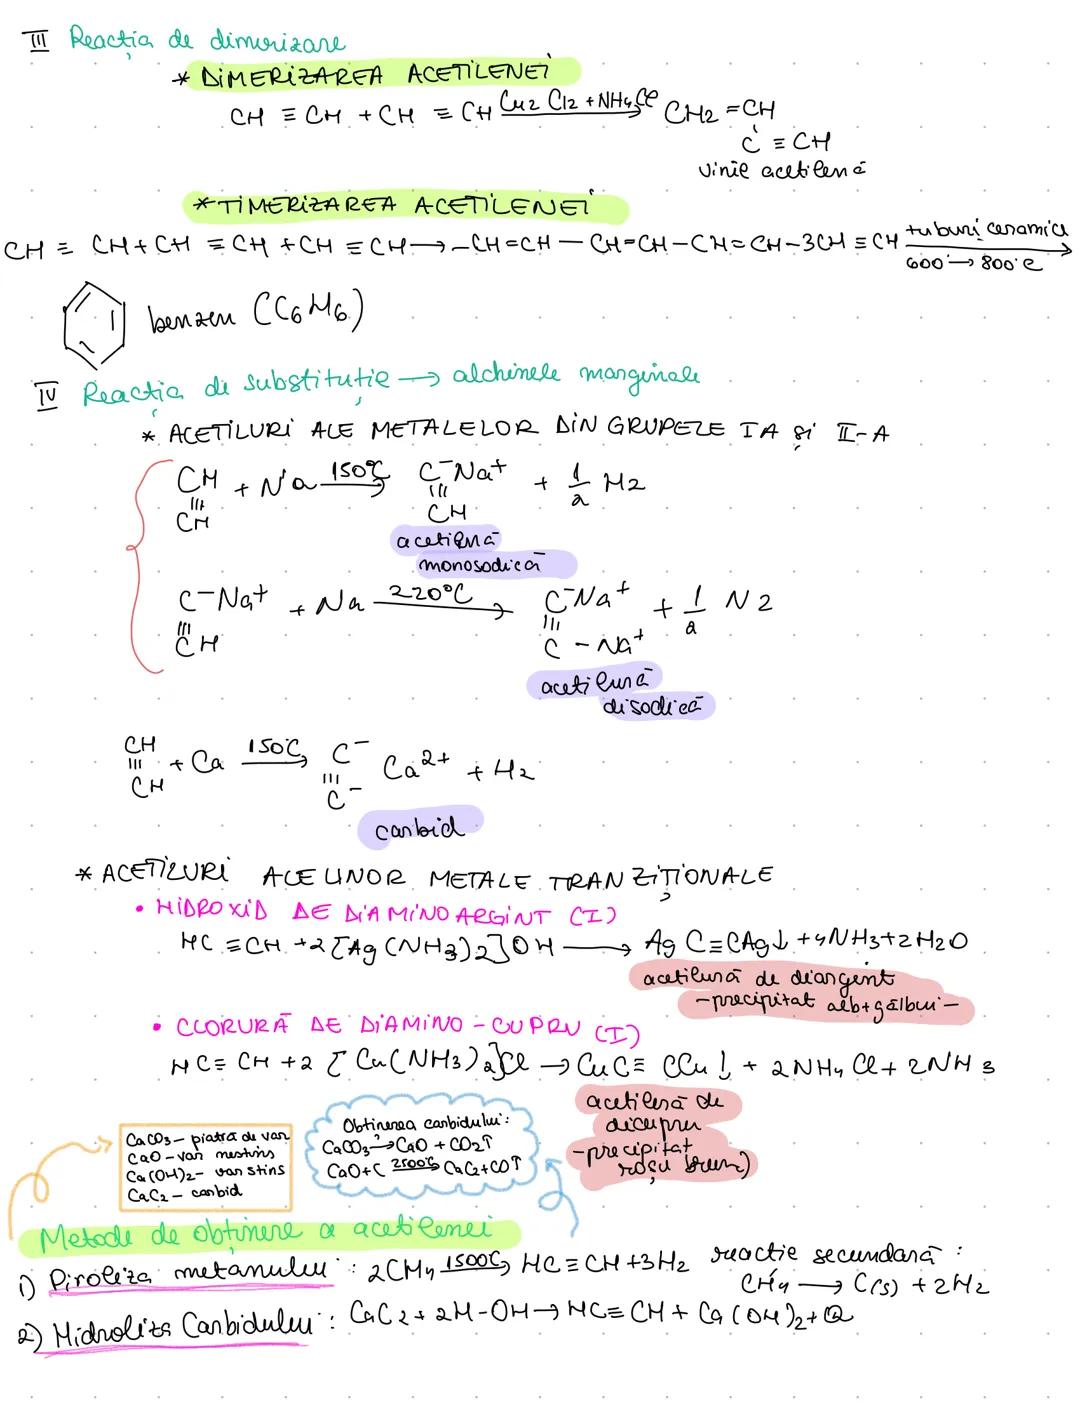 III Reacția de dimerizare
* DIMERIZAREA ACETILENEI
CH ≡ CH + CH ≡ CH Cu2 Cl2 + NH4Cl → CH2 = CH
C ≡ CH
vinil acetilenă
* TIMERIZAREA ACETILENEI
CH ≡ CH + CH ≡ CH + CH ≡ CH → -CH=CH - CH=CH-CH=CH-3CH ≡ CH tuburi ceramice
600° → 800°C
benzen (C6H6)
IV Reacția de substituție → alchinele marginale
* ACETILURI ALE METALELOR DIN GRUPELE IA și II-A
CH + Na 150°C → C⁻Na⁺ + 1/2 H2
≡ ≡
CH CH
acetilenă
monosodică
C⁻Na⁺ + Na 220°C → C⁻Na⁺ + 1/2 N2
≡ ≡
CH C⁻Na⁺
acetilură
disodică
CH + Ca 150°C → C⁻ Ca²⁺ + H2
≡ ≡
CH C⁻
carbid
* ACETILURI ALE UNOR METALE TRANZIȚIONALE
• HIDROXID DE DIAMINO ARGINT (I)
HC ≡ CH + 2[Ag(NH3)2]OH → Ag C≡CAg↓ + 4NH3 + 2H2O
acetilură de diargent
-precipitat alb+gălbui-
• CLORURĂ DE DIAMINO-CUPRU (I)
HC ≡ CH + 2 [Cu(NH3)2]Cl → CuC ≡ CCu↓ + 2NH4Cl + 2NH3
acetilură de
dicupru
-precipitat
roșu brun)
CaCO3 - piatră de var
CaO - var nestins
Ca(OH)2 - var stins
CaC2 - carbid
Obținerea carbidului:
CaCO3 → CaO + CO2↑
CaO+C 2500°C → CaC2+CO↑
Metode de obținere a acetilenei
1) Piroliza metanului: 2CH4 1500°C → HC ≡ CH + 3H2 reacție secundară:
CH4 → C(s) + 2H2
2) Hidroliza Carbidului: CaC2 + 2H-OH → HC ≡ CH + Ca(OH)2 + Q